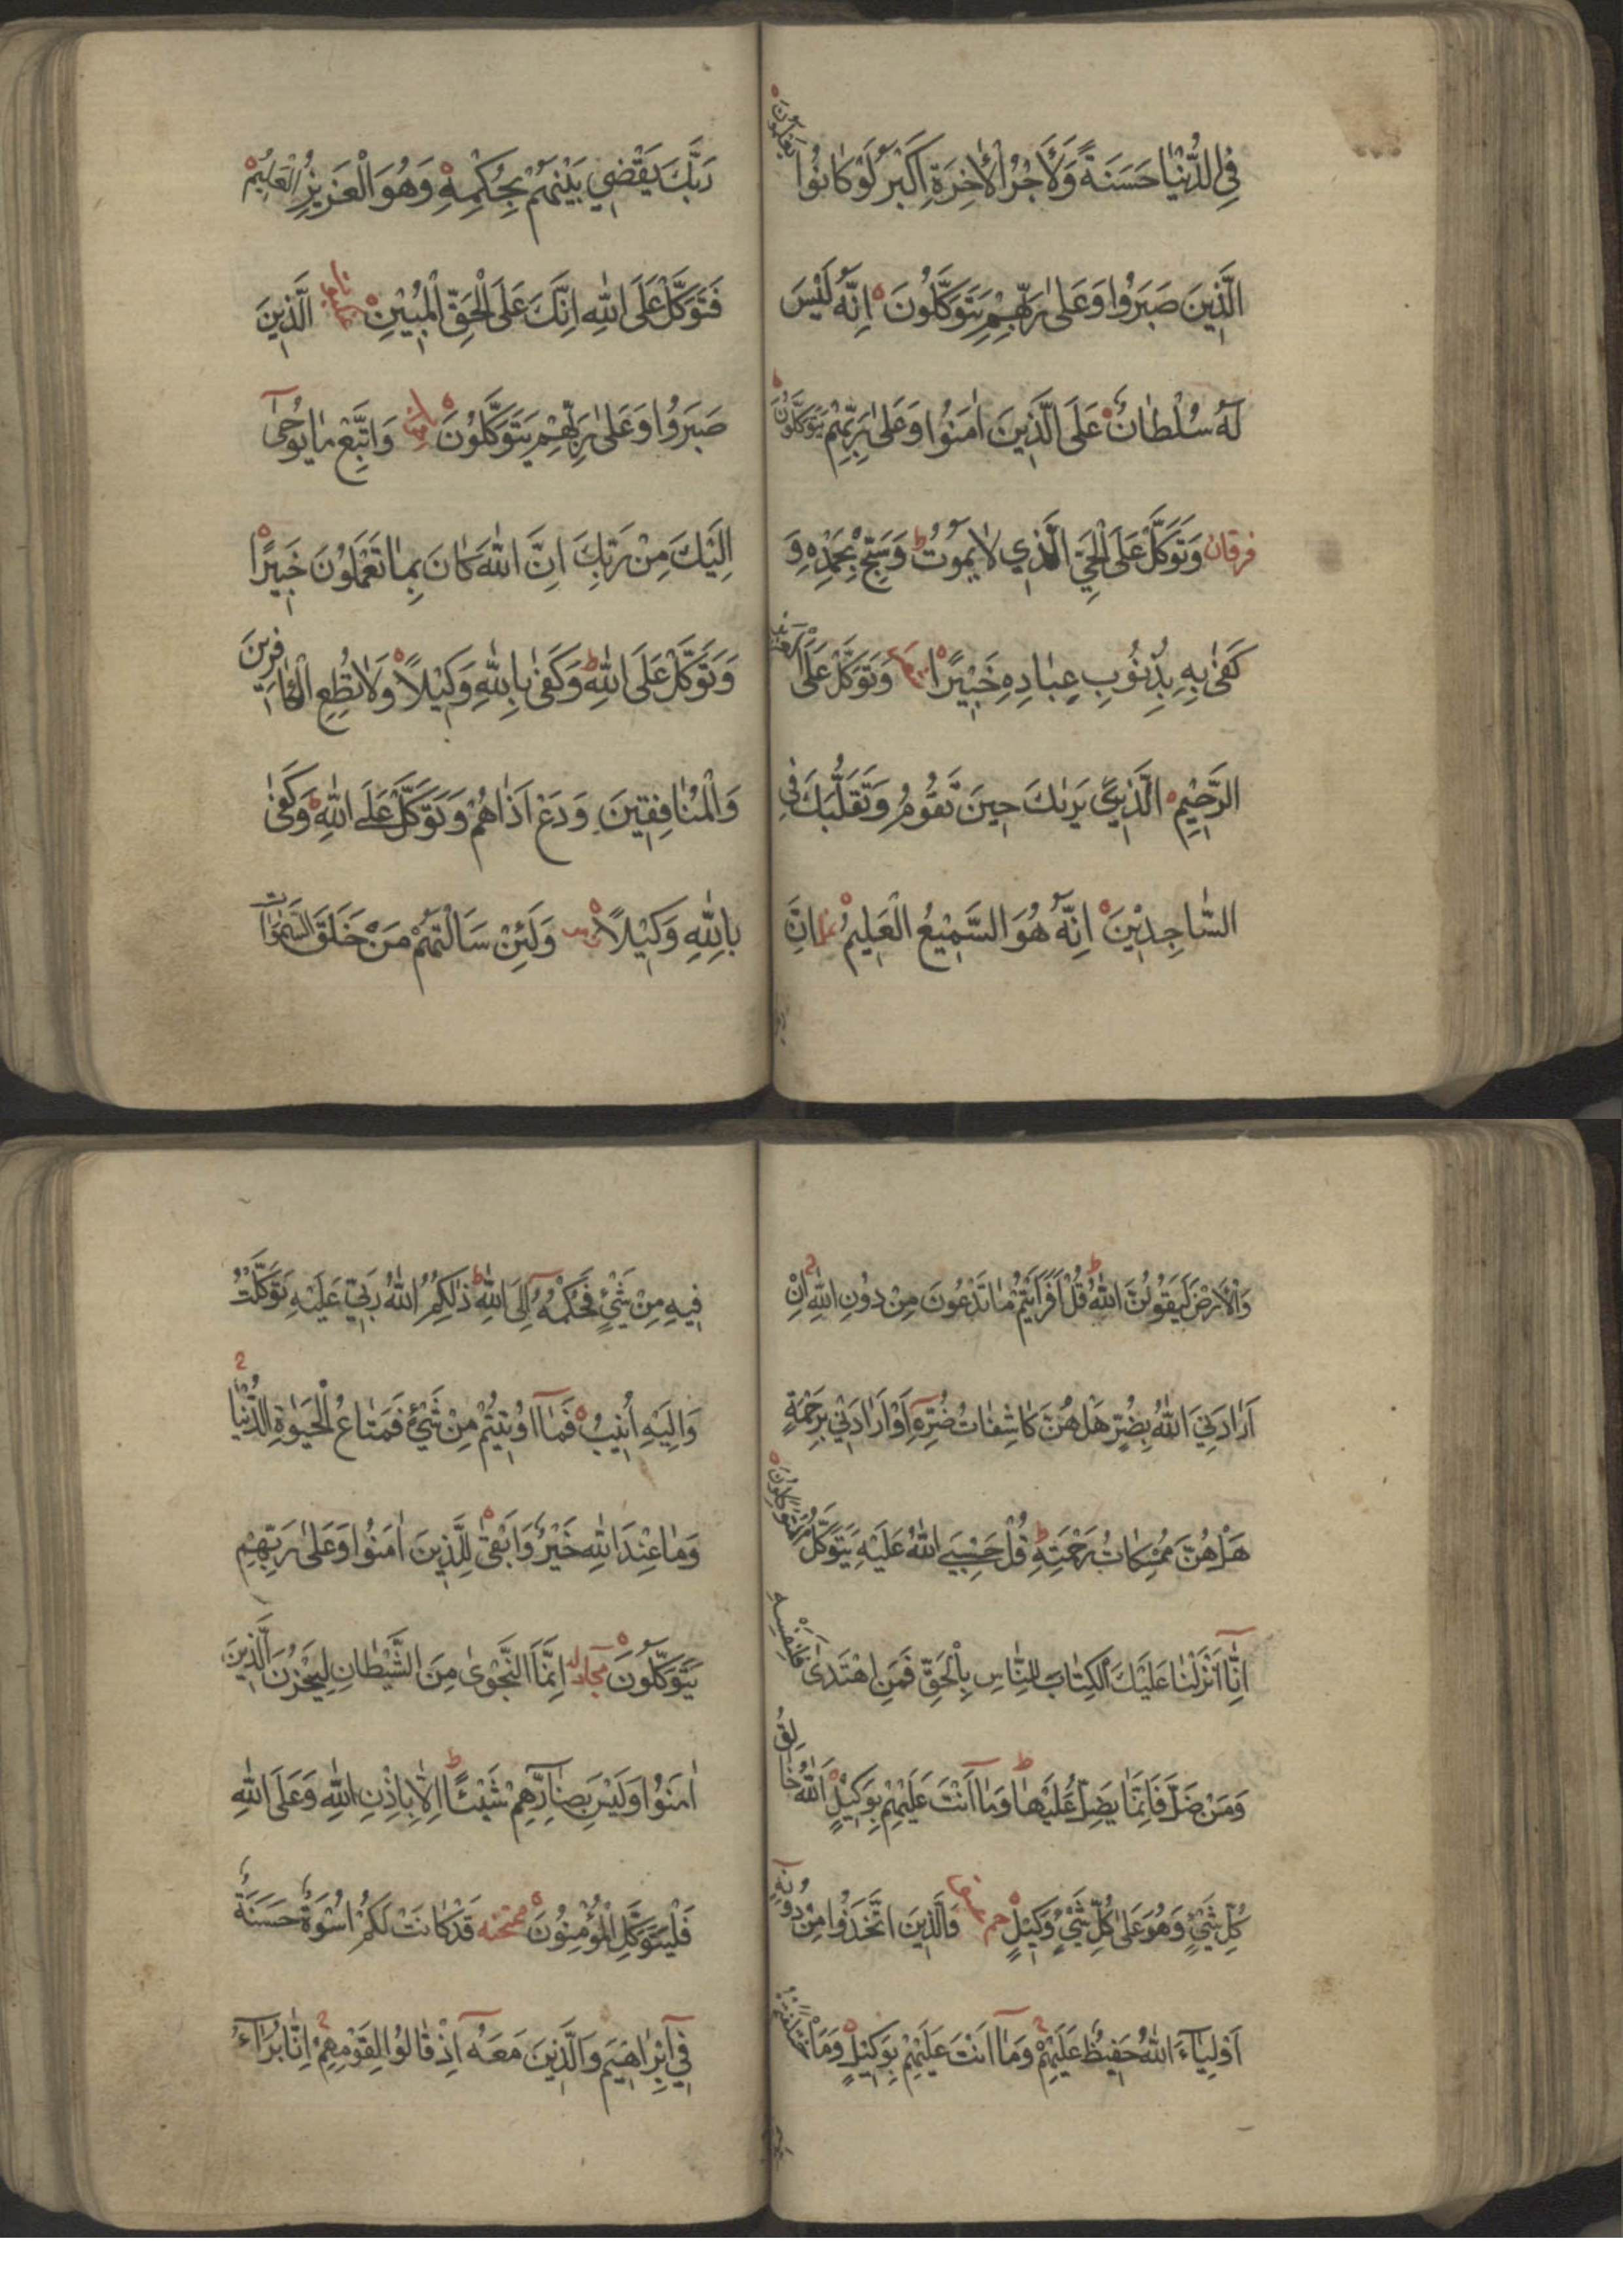 فِي الدُّنْيَا حَسَنَةً وَلَأَجْرُ الْاٰخِرَةِ اَكْبَرُ لَوْ كَانُوا يَعْلَمُونَ
الَّذِينَ صَبَرُوا وَعَلٰى رَبِّهِمْ يَتَوَكَّلُونَ اِنَّهُ لَيْسَ
لَهُ سُلْطَانٌ عَلَى الَّذِينَ اٰمَنُوا وَعَلٰى رَبِّهِمْ يَتَوَكَّلُونَ
فرقان وَتَوَكَّلْ عَلَى الْحَيِّ الَّذِي لَا يَمُوتُ وَسَبِّحْ بِحَمْدِهِ وَ
كَفٰى بِهِ بِذُنُوبِ عِبَادِهِ خَبِيرًا وَتَوَكَّلْ عَلَى الْعَزِيزِ
الرَّحِيمِ الَّذِي يَرٰيكَ حِينَ تَقُومُ وَتَقَلُّبَكَ فِي
السَّاجِدِينَ اِنَّهُ هُوَ السَّمِيعُ الْعَلِيمُ نمل اِنَّ
رَبَّكَ يَقْضِي بَيْنَهُمْ بِحُكْمِهِ وَهُوَ الْعَزِيزُ الْعَلِيمُ
فَتَوَكَّلْ عَلَى اللّٰهِ اِنَّكَ عَلَى الْحَقِّ الْمُبِينِ الَّذِينَ
صَبَرُوا وَعَلٰى رَبِّهِمْ يَتَوَكَّلُونَ وَاتَّبِعْ مَا يُوحٰى
اِلَيْكَ مِنْ رَبِّكَ اِنَّ اللّٰهَ كَانَ بِمَا تَعْمَلُونَ خَبِيرًا
وَتَوَكَّلْ عَلَى اللّٰهِ وَكَفٰى بِاللّٰهِ وَكِيلًا وَلَا تُطِعِ الْكَافِرِينَ
وَالْمُنَافِقِينَ وَدَعْ اَذَاهُمْ وَتَوَكَّلْ عَلَى اللّٰهِ وَكَفٰى
بِاللّٰهِ وَكِيلًا وَلَئِنْ سَاَلْتَهُمْ مَنْ خَلَقَ السَّمٰوَاتِ
وَالْاَرْضَ لَيَقُولُنَّ اللّٰهُ قُلْ اَفَرَاَيْتُمْ مَا تَدْعُونَ مِنْ دُونِ اللّٰهِ اِنْ
اَرَادَنِيَ اللّٰهُ بِضُرٍّ هَلْ هُنَّ كَاشِفَاتُ ضُرِّهِ اَوْ اَرَادَنِي بِرَحْمَةٍ
هَلْ هُنَّ مُمْسِكَاتُ رَحْمَتِهِ قُلْ حَسْبِيَ اللّٰهُ عَلَيْهِ يَتَوَكَّلُ الْمُتَوَكِّلُونَ
اِنَّا اَنْزَلْنَا عَلَيْكَ الْكِتَابَ لِلنَّاسِ بِالْحَقِّ فَمَنِ اهْتَدٰى فَلِنَفْسِهِ
وَمَنْ ضَلَّ فَاِنَّمَا يَضِلُّ عَلَيْهَا وَمَا اَنْتَ عَلَيْهِمْ بِوَكِيلٍ اَللّٰهُ خَالِقُ
كُلِّ شَيْءٍ وَهُوَ عَلٰى كُلِّ شَيْءٍ وَكِيلٌ حم وَالَّذِينَ اتَّخَذُوا مِنْ دُونِهِ
اَوْلِيَاءَ اللّٰهُ حَفِيظٌ عَلَيْهِمْ وَمَا اَنْتَ عَلَيْهِمْ بِوَكِيلٍ وَمَا اخْتَلَفْتُمْ
فِيهِ مِنْ شَيْءٍ فَحُكْمُهُ اِلَى اللّٰهِ ذٰلِكُمُ اللّٰهُ رَبِّي عَلَيْهِ تَوَكَّلْتُ
وَاِلَيْهِ اُنِيبُ فَمَا اُوتِيتُمْ مِنْ شَيْءٍ فَمَتَاعُ الْحَيٰوةِ الدُّنْيَا
وَمَا عِنْدَ اللّٰهِ خَيْرٌ وَاَبْقٰى لِلَّذِينَ اٰمَنُوا وَعَلٰى رَبِّهِمْ
يَتَوَكَّلُونَ مجادله اِنَّمَا النَّجْوٰى مِنَ الشَّيْطَانِ لِيَحْزُنَ الَّذِينَ
اٰمَنُوا وَلَيْسَ بِضَارِّهِمْ شَيْئًا اِلَّا بِاِذْنِ اللّٰهِ وَعَلَى اللّٰهِ
فَلْيَتَوَكَّلِ الْمُؤْمِنُونَ ممتحنه قَدْ كَانَتْ لَكُمْ اُسْوَةٌ حَسَنَةٌ
فِي اِبْرَاهِيمَ وَالَّذِينَ مَعَهُ اِذْ قَالُوا لِقَوْمِهِمْ اِنَّا بُرَاٰءُ